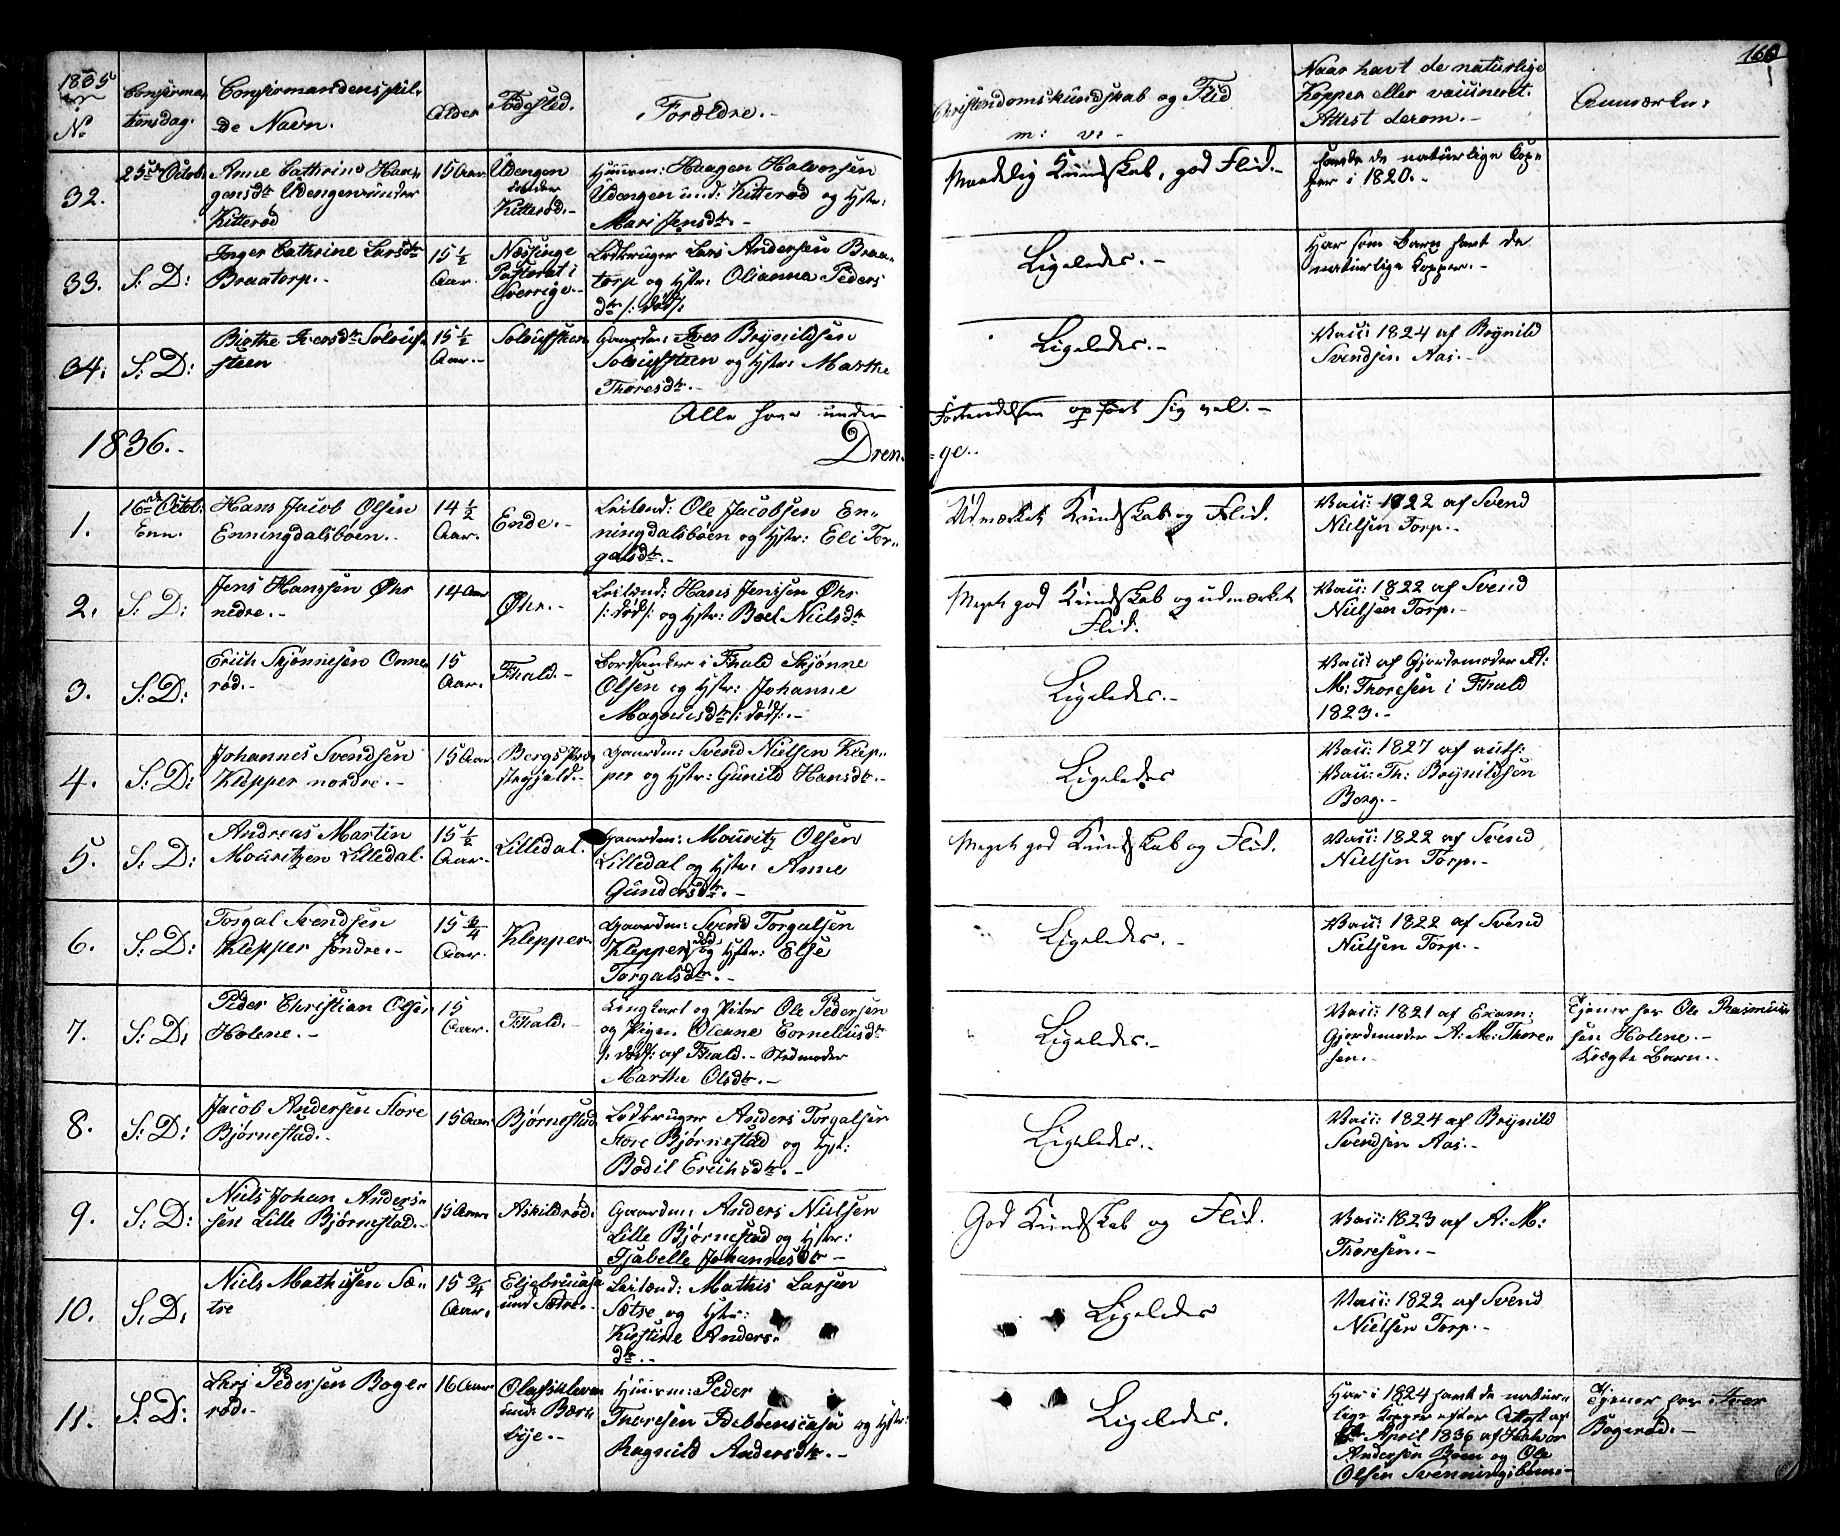 1835
160
No
Confirma-
tionsdag.
Confirmandens ful-
de Navn.
Alder
Fødested.
Forældre.-
Christendomskundskab og Flid
m: v: -
Naar havt de naturlige
Kopper eller vaccineret.
Attest derom.-
Anmærkn:
32.
25de Octob.
Anne Cathrine Haa-
gensdtr Udengen under
Kitterød
15 Aar.
Udengen
under
Kitterød.-
Huusm: Haagen Halvorsen
Udengen und: Kitterød og Hstr:
Mari Jensdtr.-
Maadelig Kundskab, god Flid.-
havde de naturlige Kop-
per i 1820.-
33.
S: D:
Inger Cathrine Larsdtr
Braatorp.-
15 1/2
Aar.
Næssinge
Pastorat i
Sverrige.-
Ladbruger Lars Andersen Braa-
torp og Hstr: Olianna Peders
dtr /: død /:
Ligeledes.-
Har som Barn havt de
naturlige Kopper.-
34.
S: D:
Birthe Iversdtr
steen
15 1/2
Aar.-
Gaardm: Iver Brynildsen
og Hstr: Marthe
Thoresdtr.-
Ligeledes.-
Vacc: 1824 af Brynild
Svendsen Aas.-
Alle have under Forberedelsen opført sig vel.-
1836.-
Dren-ge.-
1.
16de Octob:
Enn.
Hans Jacob Olsen
Enningdalsbøen.-
14 1/2
Aar.
Ende.-
Leilend: Ole Jacobsen En-
ningdalsbøen og Hstr: Eli Tor-
galsdtr.-
Udmærket Kundskab og Flid.
Vacc: 1822 af Svend
Nielsen Torp.-
2.
S: D:
Jens Hanssen Øhr
nedre.-
14 Aar
Øhr.-
Leilend: Hans Jenssen Øhr
/: død /: og Hstr: Boel Nielsdtr
Meget god Kundskab og udmærket
Flid.
Vacc: 1822 af Svend
Nielsen Torp.-
3.
S: D:
Erich Skjønnesen Onne-
rød.-
15
Aar.
Fhald.-
Bordsanker i Fhald Skjønne
Olsen og Hstr: Johanne
Magnusdtr /: død /:.-
Ligeledes.-
Vacc: af Gjordemoder A:
M: Thoresen i Fhald
1823.-
4.
S: D:
Johannes Svendsen
Klepper nordre.-
15 Aar
Bergs Præ-
stegjæld.-
Gaardm: Svend Nielsen Klep-
per og Hstr: Gunild Hansdtr.-
Ligeledes
Vacc: 1827 af auth:
Vacc: Th: Brynildsen
Berg.-
5.
S: D:
Andreas Martin
Mouritzen Lilledal.
15 1/2
Aar.-
Lilledal.
Gaardm: Mouritz Olsen
Lilledal og Hstr: Anne
Gundersdtr.-
Meget god Kundskab og Flid.
Vacc: 1822 af Svend
Nielsen Torp.-
6.
S: D:
Torgal Svendsen
Klepper søndre.-
15 3/4
Aar.
Klepper.
Gaardm: Svend Torgalsen
Klepper død og Hstr: Else
Torgalsdtr.-
Ligeledes.-
Vacc: 1822 af Svend
Nielsen Torp.-
7.
S: D:
Peder Christian Olsen
Holene.-
15
Aar.
Fhald.-
Ungkarl og Ole Pedersen
og Pigen Oleane Corneliusdtr
/: død /: af Fhald.- Stedmoder
Marthe Olsdtr.-
Ligeledes.-
Vacc: 1821 af Exam:
Gjordemoder A: M: Thore-
sen.-
Tjener hos Ole Rasmus-
sen Holene.-
Uægte Barn.-
8.
S: D:
Jacob Andersen Store
Bjørnestad.-
15 Aar.
Bjørnestad
Ladbruger Anders Torgalsen
Store Bjørnestad og Hst:
Bodil Erichsdtr.-
Ligeledes.-
Vacc: 1824 af Brynild
Svendsen Aas.-
9.
S: D:
Niels Johan Anders-
sen Lille Bjørnestad.-
15 Aar.
Askildrød.
Gaardm: Anders Nielsen
Lille Bjørnestad og Hstr:
Isabelle Johannesdtr -
God Kundskab og Flid.
Vacc: 1823 af A: M:
Thoresen.-
10.
S: D:
Niels Mathissen Sæ-
tre
15 3/4
Aar.
und: Sætre.-
Leilend: Mathis Larsen
Sætre og Hstr:
Kirstine Anders-
dtr.-
Ligeledes
Vacc: 1822 af Svend
Nielsen Torp.-
11.
S: D:
Lars Pedersen Boge-
rød.-
16 Aar
und: Bær-
bye.-
Huusm: Peder
Thoresen og Hstr:
Ragnild Andersdtr.-
Ligeledes.
Har i 1824 havt de natur-
lige Kopper efter Attest af
April 1836 af Halvor
Andersen Bøen og Ole
Olsen
Tjener hos Iver
Bogerød.-